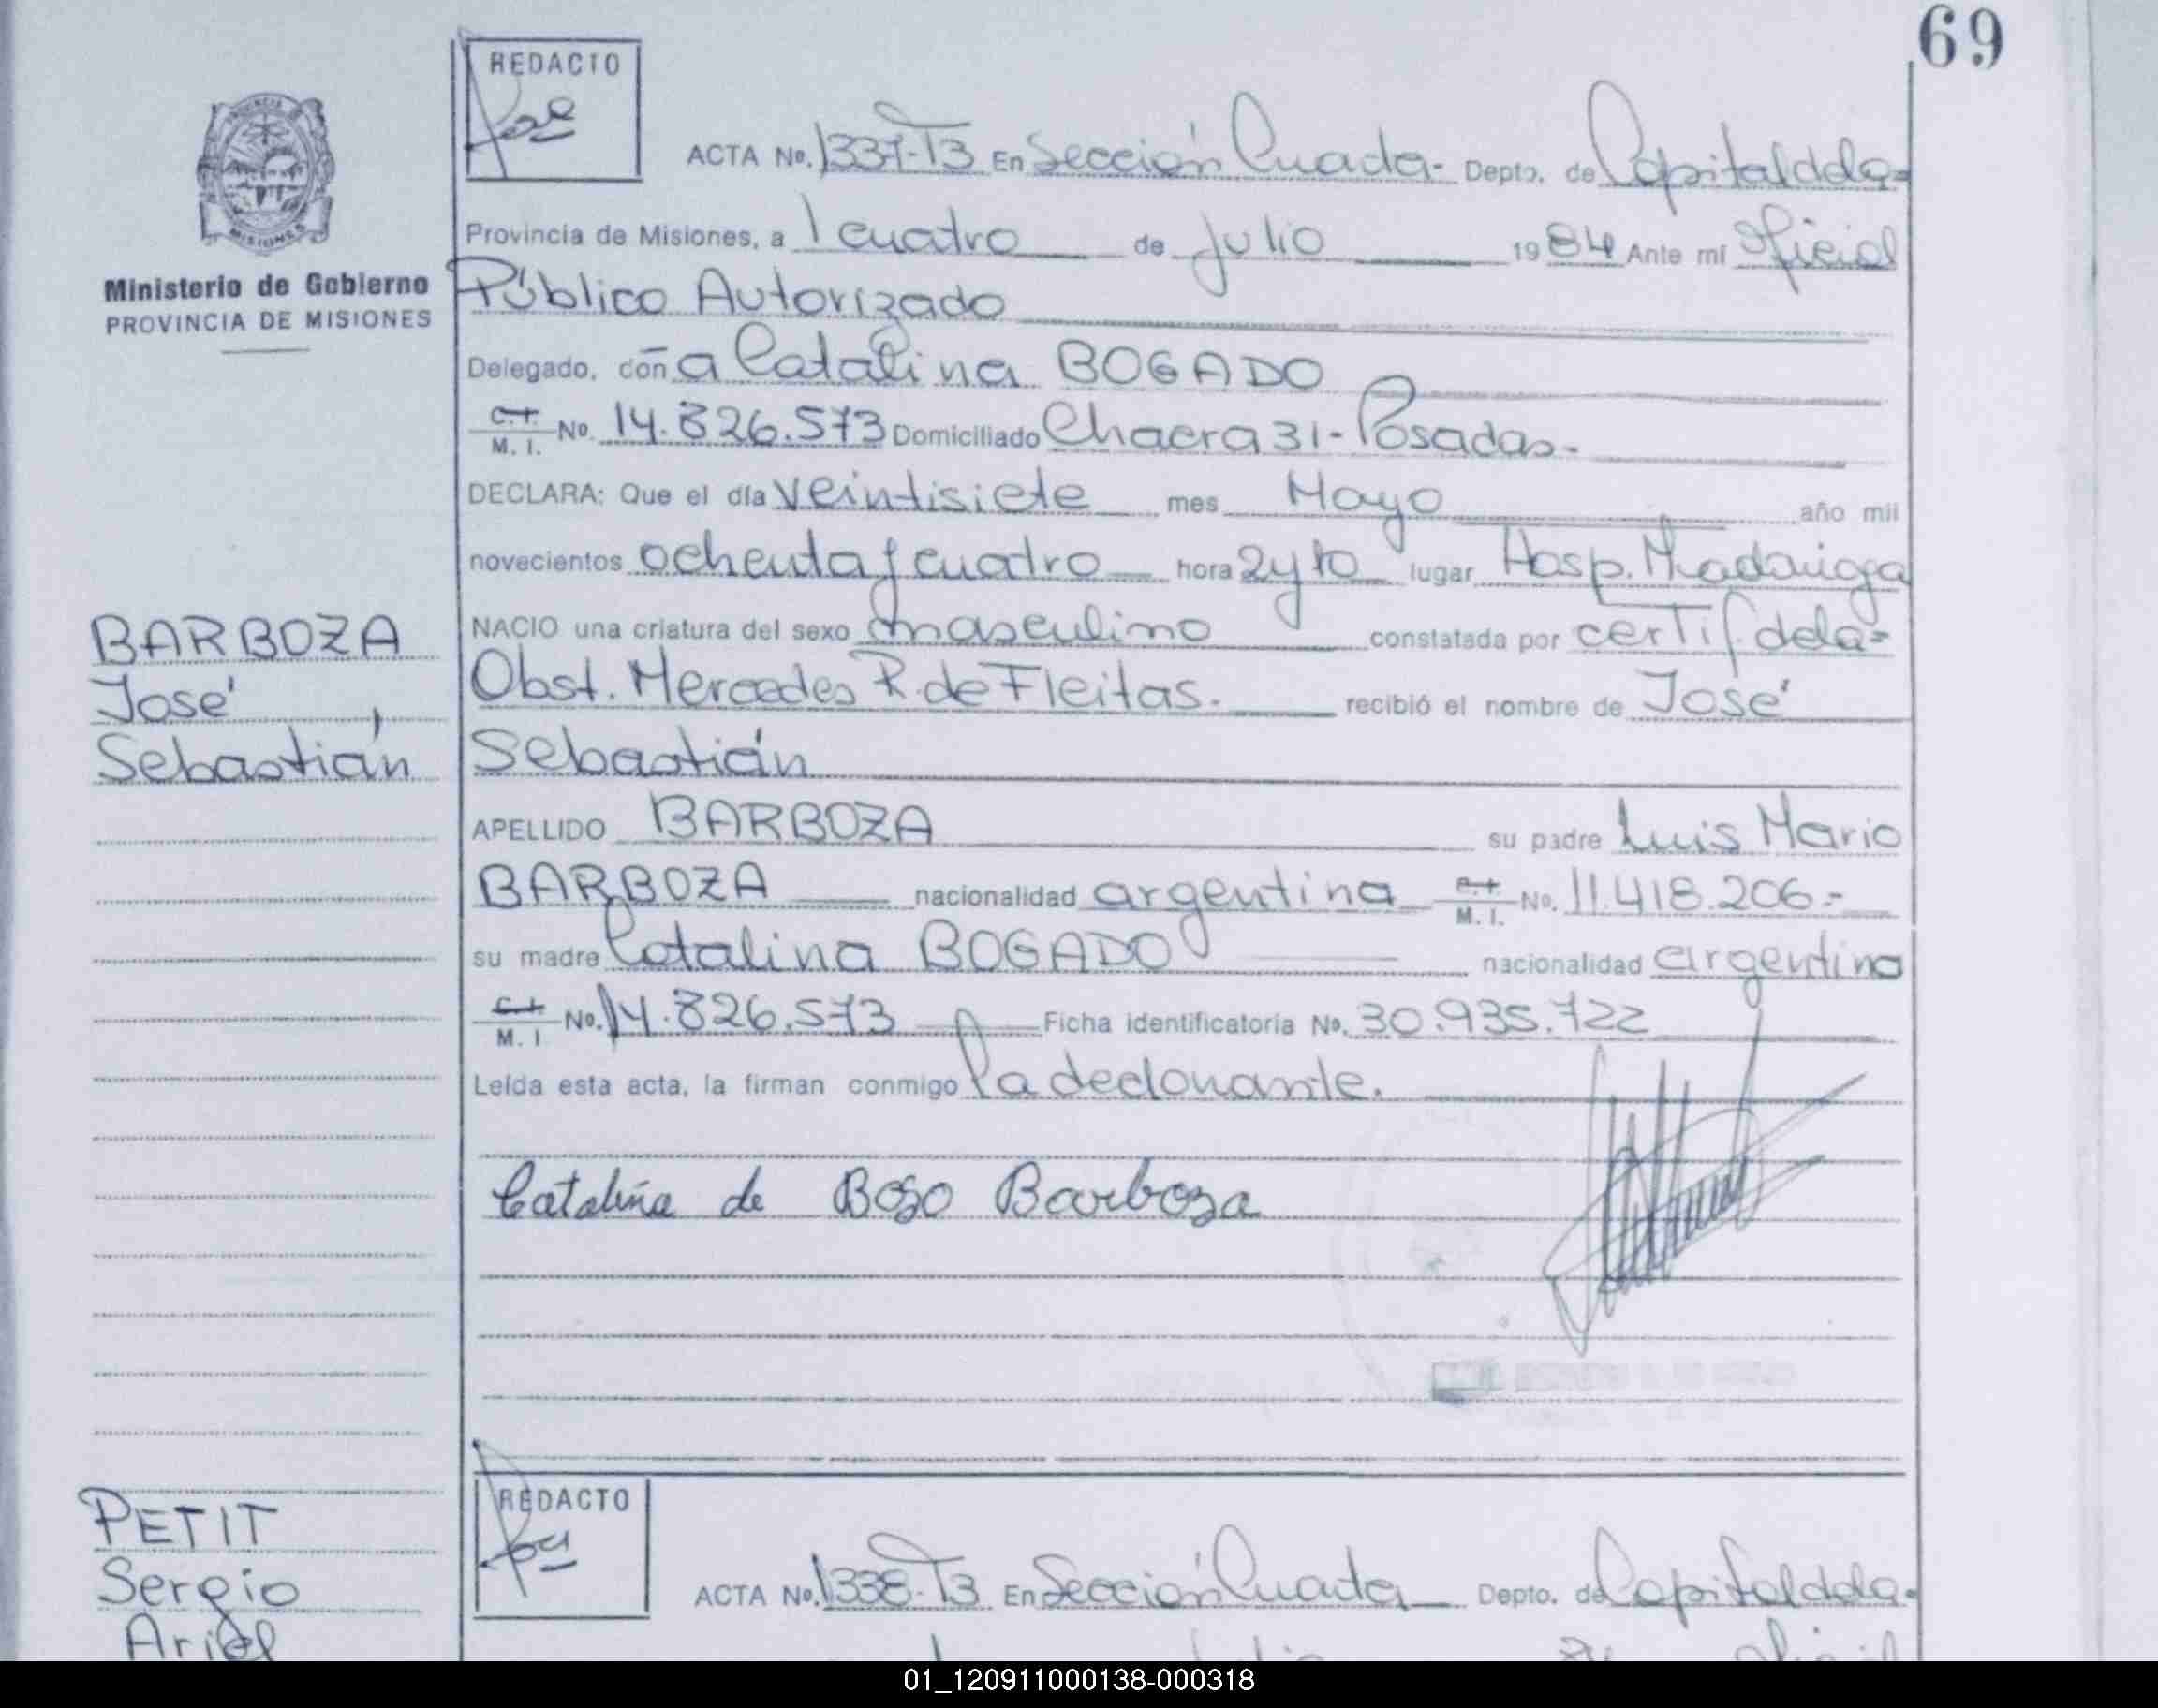 69
REDACTO
ACTA No. 1337-T3 En Sección Cuarta- Depto. de Capital dela=
Provincia de Misiones, a l cuatro de Julio 1984 Ante mí Oficial
Público Autorizado
Delegado, doña Catalina BOGADO
C.I. M. I. No. 14.826.573 Domiciliado Chacra 31- Posadas.-
DECLARA: Que el día veintisiete mes Mayo año mil
novecientos ochenta y cuatro hora 2 y 10 lugar Hosp. Madariaga
NACIO una criatura del sexo masculino constatada por certif. dela=
Obst. Mercedes R. de Fleitas.- recibió el nombre de José
Sebastián
APELLIDO BARBOZA su padre Luis Mario
BARBOZA nacionalidad argentina C.I. M. I. No. 11.418.206.-
su madre Catalina BOGADO nacionalidad argentina
C.I. M. I No. 14.826.573 Ficha identificatoria No. 30.935.722
Leída esta acta, la firman conmigo la declarante.
Catalina de Bogo Barboza
MISIONES
Ministerio de Gobierno
PROVINCIA DE MISIONES
BARBOZA
José
Sebastián
PETIT
Sergio
Ariel
REDACTO
ACTA No. 1338-T3 En Sección Cuarta Depto. de Capital dela-
01_120911000138-000318